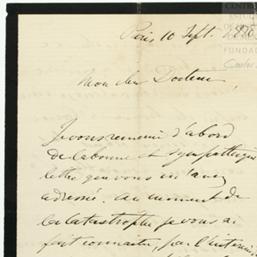 Paris 10 Sept.
Mon cher Docteur,
Je vous remercie d'abord
de la bonne et sympathique
lettre que vous m'avez
adressée. Au moment de
la catastrophe je vous ai
fait connaître, par l'
CENTRE
ESTUD
FUNDA